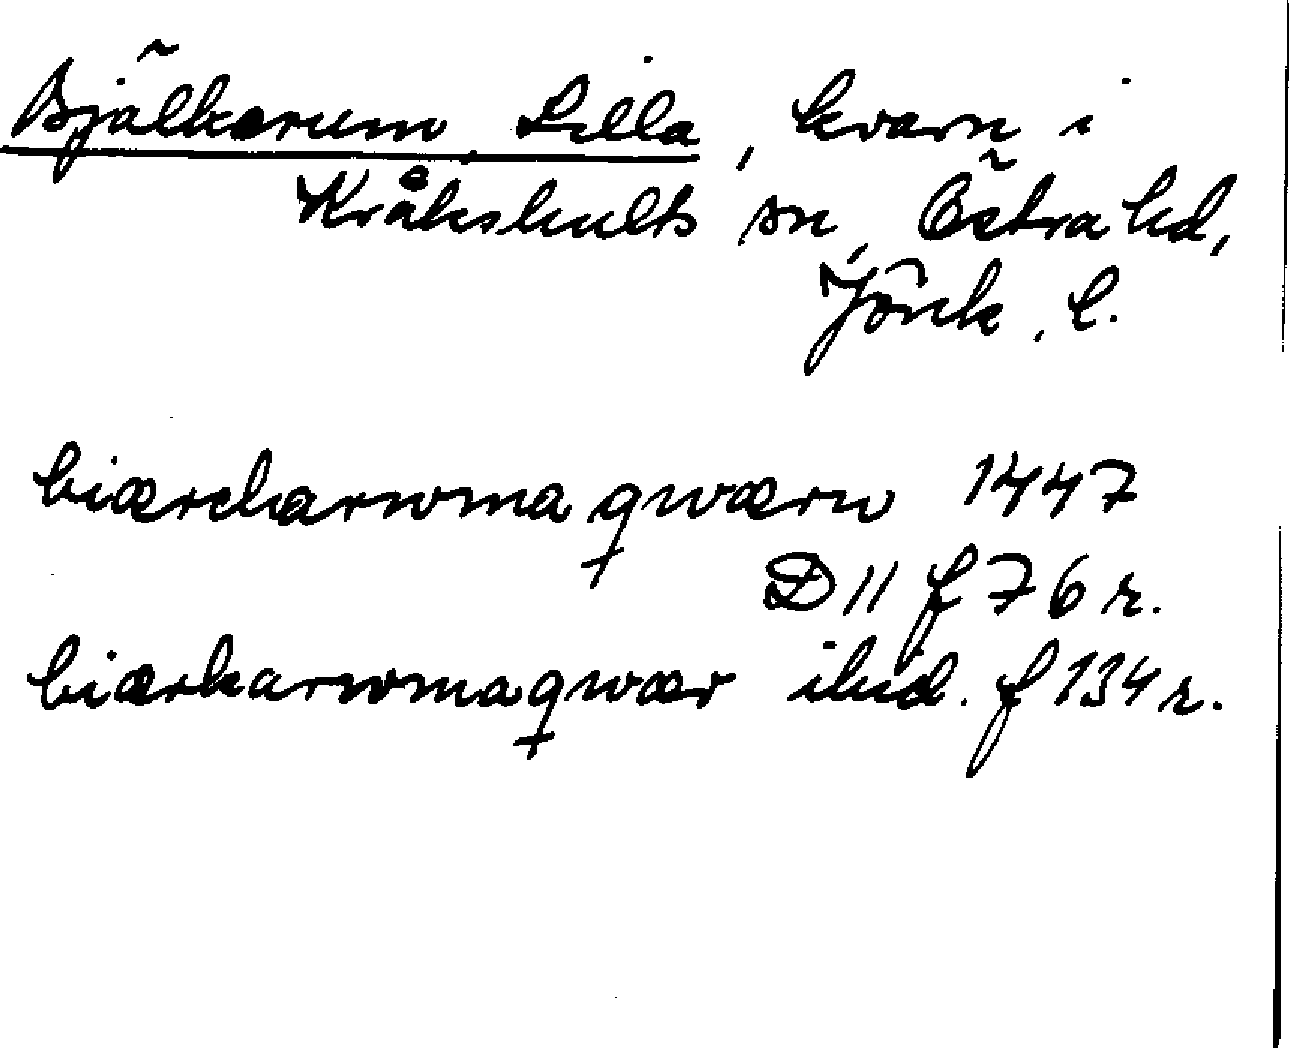 Bjälkerum, Lilla, kvarn i
Kråkshults sn, Östra hd,
Jönk. l.
biærcharwma qwærn 1447
D 11 f 76 r.
biærkarwmaqwær ibid. f 134 r.